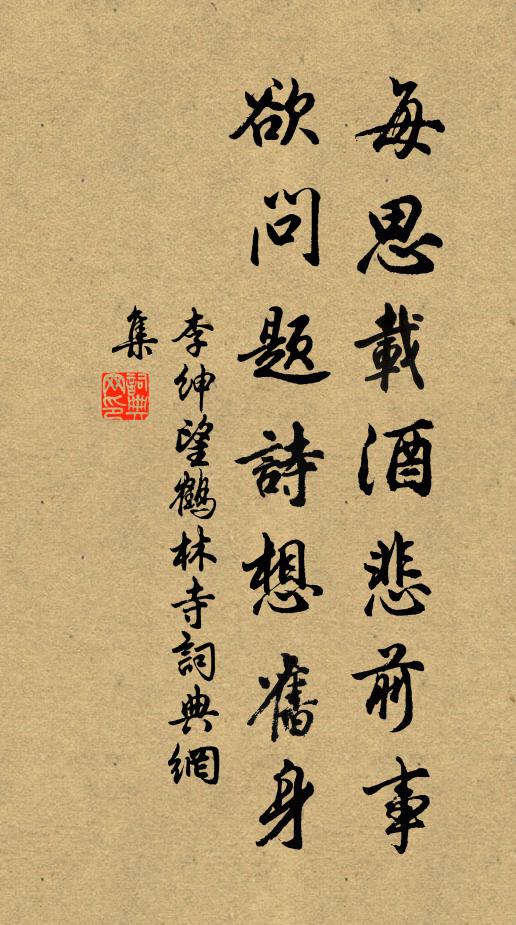 每思載酒悲前事
欲問題詩想舊身
李紳望鶴林寺詞典網
集
詞典網印